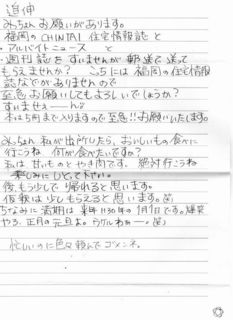 追伸
みっちゃん お願いがあります。
福岡の CHINTAI 住宅情報誌 と
・アルバイトニュース と
・週刊誌を すいませんが 郵送で 送って
もらえませんか? こっちには 福岡の住宅情報
誌などが ありませんので
至急お願いしても よろしいでしょうか?
すいませぇーーん
本は5冊まで入りますので 至急!!お願いいたします。
みっちゃん 私が出所したら、おいしいもの食べに
行こうね 何が食べたいですか?
私は 甘いものと やき肉です。 絶対行こうね
楽しみにしとって下さい。
後もう少しで 帰れると思います。
仮釈は 少しもらえると思います。(笑)
ちなみに 満期は 来年 H30年の 1月1日です。爆笑
やろ、正月の元旦よ。 ウケルわぁー。(笑)
忙しいのに色々頼んで ゴメンネ。